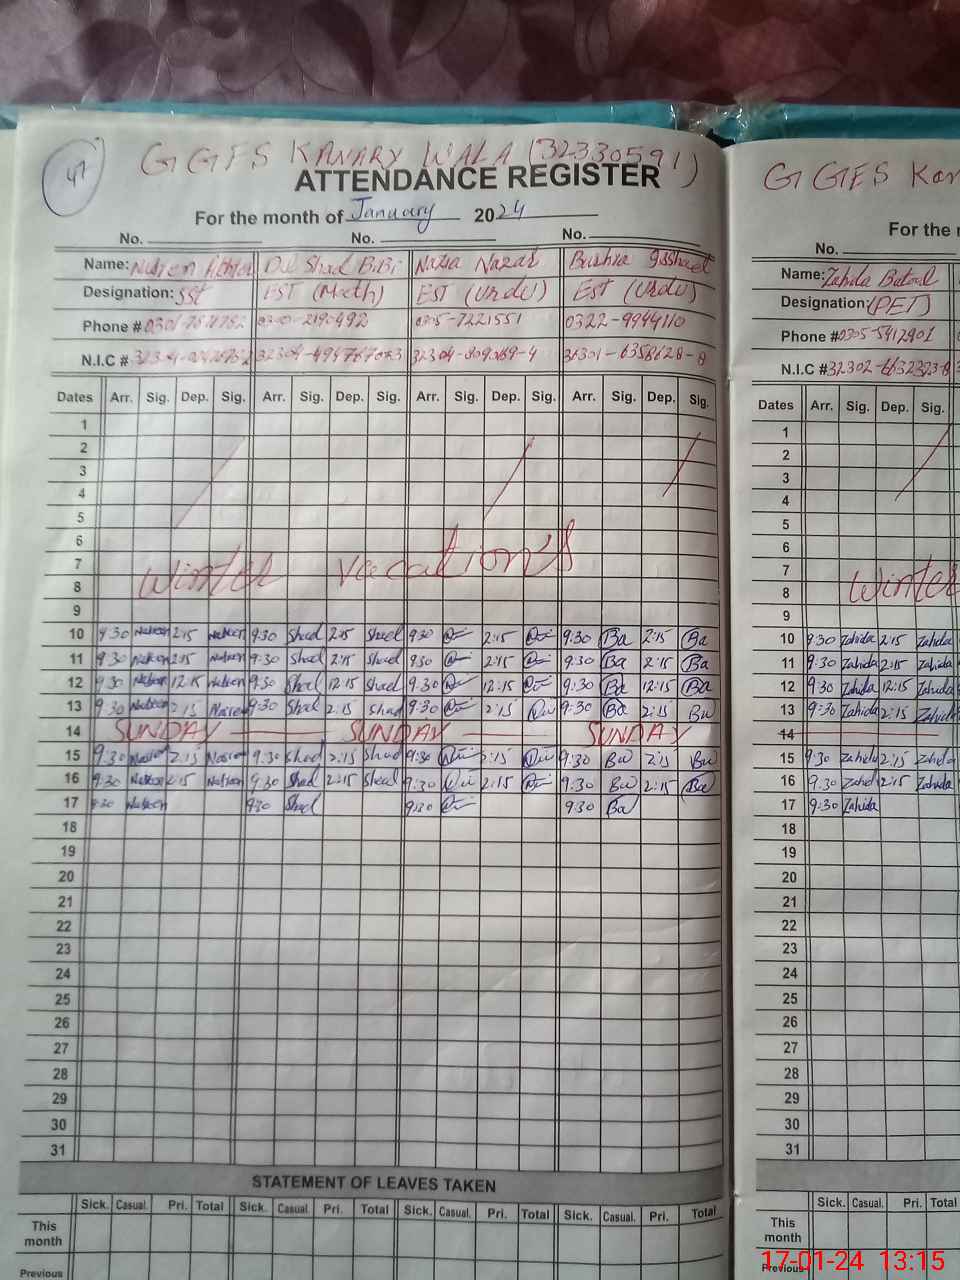 47
GGES KANARY WALA (32330591)
ATTENDANCE REGISTER
For the month of January 2024
No. No. No.
Name: Dil Shad BiBi Nazia Nazar Bushra
Designation: SST EST (Math) EST (Urdu) EST (Urdu)
Phone # 0305-7221551 0322-9944110
N.I.C #
Dates Arr. Sig. Dep. Sig. Arr. Sig. Dep. Sig. Arr. Sig. Dep. Sig. Arr. Sig. Dep. Sig.
1
2
3
4
5
6
7
8
Winter vacation's
9
10 9:30 Nasreen 2:15 Nasreen 9:30 Shad 2:15 Shad 9:30 2:15 9:30 Ba 2:15 Ba
11 9:30 Nasreen 2:15 Nasreen 9:30 Shad 2:15 Shad 9:30 2:15 9:30 Ba 2:15 Ba
12 9:30 Nasreen 12:15 Nasreen 9:30 Shad 12:15 Shad 9:30 12:15 9:30 Ba 12:15 Ba
13 9:30 Nasreen 2:15 Nasreen 9:30 Shad 2:15 Shad 9:30 2:15 9:30 Ba 2:15 Ba
14 SUNDAY SUNDAY SUNDAY
15 9:30 Nasreen 2:15 Nasreen 9:30 Shad 2:15 Shad 9:30 2:15 9:30 Ba 2:15 Ba
16 9:30 Nasreen 2:15 Nasreen 9:30 Shad 2:15 Shad 9:30 2:15 9:30 Ba 2:15 Ba
17 9:30 Nasreen 9:30 Shad 9:30 9:30 Ba
18
19
20
21
22
23
24
25
26
27
28
29
30
31
STATEMENT OF LEAVES TAKEN
Sick. Casual. Pri. Total Sick. Casual. Pri. Total Sick. Casual. Pri. Total Sick. Casual. Pri. Total
This month
Previous
GGES Kan
For the
No.
Name: Zahida Batool
Designation: (PET)
Phone # 0305-5412901
N.I.C #
Dates Arr. Sig. Dep. Sig.
1
2
3
4
5
6
7
8
Winter
9
10 9:30 Zahida 2:15 Zahida
11 9:30 Zahida 2:15 Zahida
12 9:30 Zahida 12:15 Zahida
13 9:30 Zahida 2:15 Zahida
14
15 9:30 Zahida 2:15 Zahida
16 9:30 Zahida 2:15 Zahida
17 9:30 Zahida
18
19
20
21
22
23
24
25
26
27
28
29
30
31
Sick. Casual. Pri. Total
This month
Previous
17-01-24 13:15